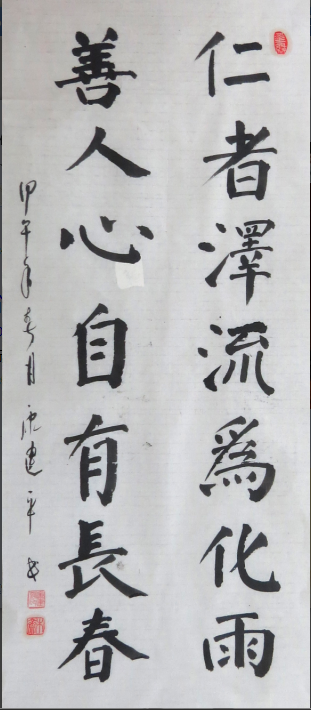 仁者澤流爲化雨
善人心自有長春
甲午年春月康建平書